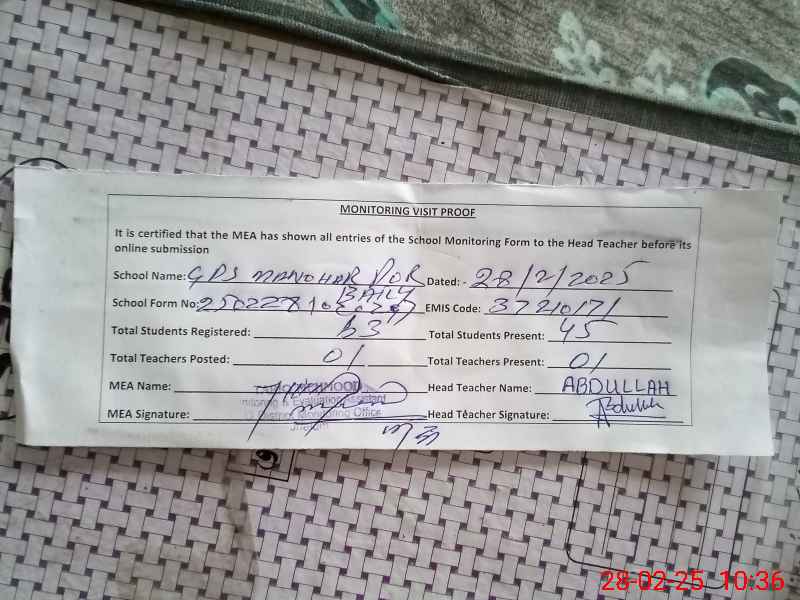 MONITORING VISIT PROOF
It is certified that the MEA has shown all entries of the School Monitoring Form to the Head Teacher before its
online submission
School Name: GPS MANOHAR POR Dated: - 28/2/2025
BAILY
School Form No: EMIS Code: 37210171
Total Students Registered: 53 Total Students Present: 45
Total Teachers Posted: 01 Total Teachers Present: 01
MEA Name: MEHMOOD Head Teacher Name: ABDULLAH
Monitoring & Evaluation Assistant
MEA Signature: District Monitoring Office Head Teacher Signature: Abdullah
Jhelum
28-02-25 10:36